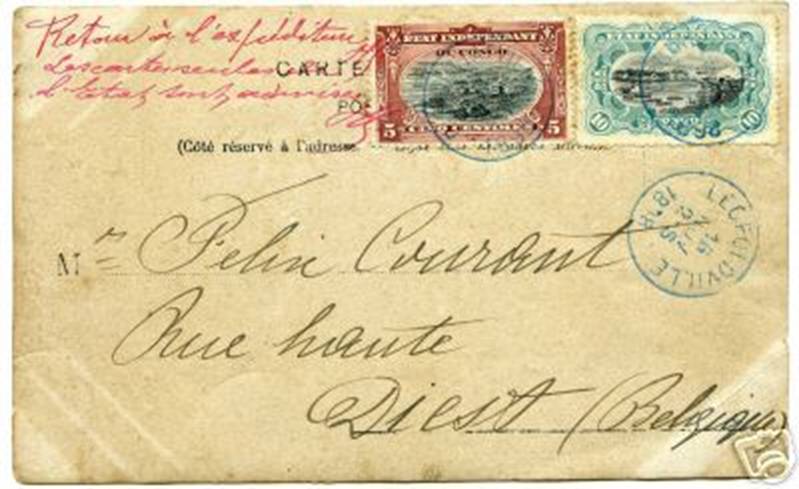 Retour à l'expéditeur
Les cartes seules de
l'Etat sont admises
CARTE
PO
(Côté réservé à l'adresse.
ETAT INDEPENDANT
DU CONGO
5 CINQ CENTIMES 5
ETAT INDEPENDANT
CONGO
10 10
LEOPOLDVILLE
Mr Felix Courant
Rue haute
Diest (Belgique)